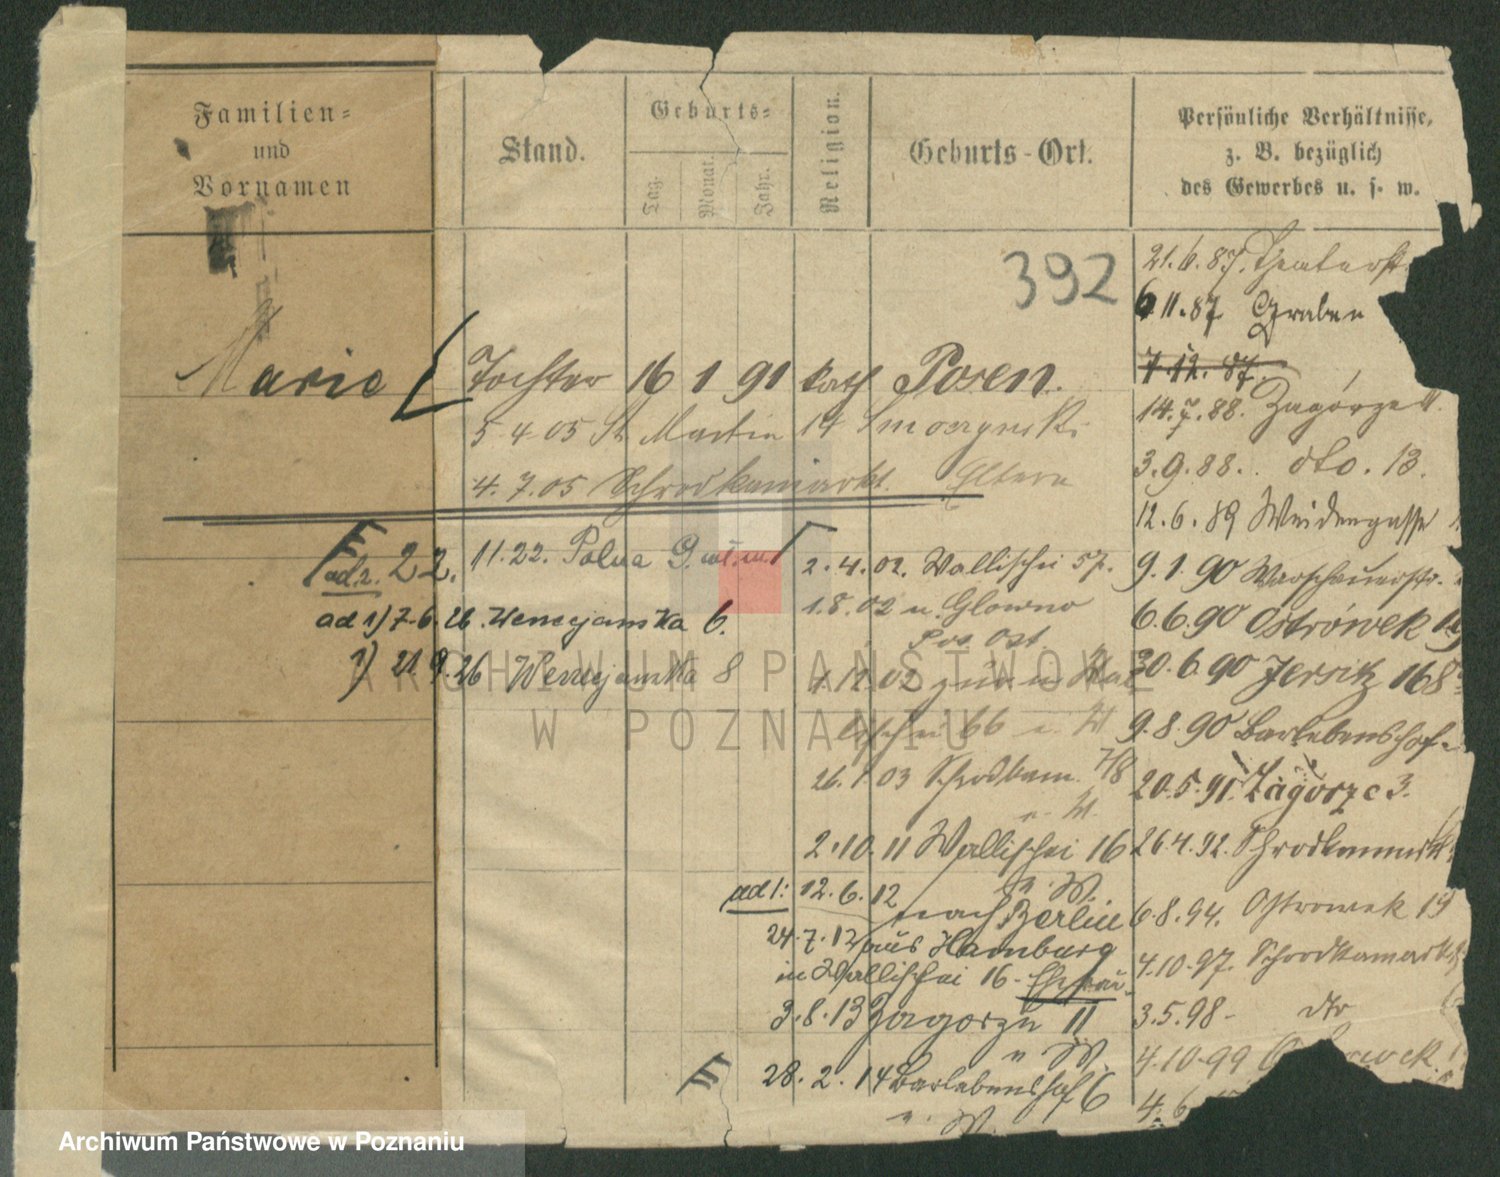 Familien-
und
Vornamen
Stand.
Geburts-
Tag.
Monat.
Jahr.
Religion.
Geburts-Ort.
Persönliche Verhältnisse,
z. B. bezüglich
des Gewerbes u. s. w.
392
Marie
Tochter 16 1 91 kath Posen.
5 4 05 St Martin 14
4. 7. 05 Schrodkamarkt. Eltern
ad 2. 22. 11. 22. Polna
ad 1) 7. 6. 26. Wenecjanska 6.
1) 21. 9. 26 Wenecjanska 8
2. 4. 02. Wallischei 57.
1. 8. 02 n. Glowno
Pos. Ost.
12. 02 zur
66
26. 1. 03 Schrodkam. 7/8
2. 10. 11 Wallischei 16
ad 1: 12. 6. 12
nach Berlin
24. 7. 12 aus Hamburg
in Wallischei 16 - Ehefrau
3. 8. 13 Zagorze 11
28. 2. 14 Barlebenshof 6
21. 6. 87. Theaterstr.
6 11. 87 Graben
7. 12. 87.
14. 7. 88. Zagórze 11.
3. 9. 88. dto. 13.
12. 6. 89 Weidengasse
9. 1. 90 Warschauerstr.
6. 6. 90 Ostrówek 19
30. 6. 90 Jersitz 168
9. 8. 90 Barlebenshof
20. 5. 91. Zagorze 3.
26. 4. 92. Schrodkamarkt
6. 8. 94. Ostrowek 19
4. 10. 97. Schrodkamarkt
3. 5. 98 - dto
4. 10. 99
4. 6
ARCHIWUM PAŃSTWOWE
W POZNANIU
Archiwum Państwowe w Poznaniu